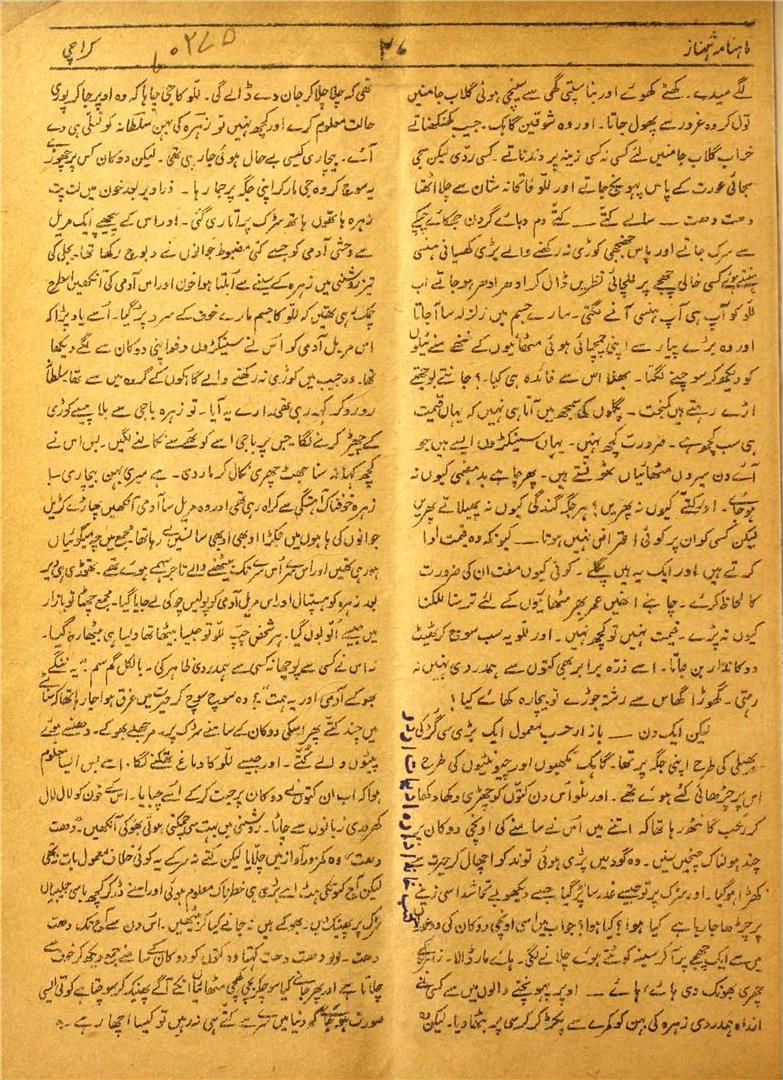 ماہنامہ شہناز
۲۷
کراچی
لگے میدے۔ کھٹے کھوئے اور بناسپتی گھی سے سینچی ہوئی گلاب جامنیں
تول کر وہ غرور سے پھول جاتا۔ اور وہ شوقین گاہک۔ جیب کھنکھناتے
خراب گلاب جامنیں لئے کسی نہ کسی زینہ پر دندناتے۔ کسی ردّی لیکن سجی
سجائی عورت کے پاس پہونچ جاتے اور للّو فاتحانہ شان سے چلا اٹھتا
دھت دھت — سالے کتّے — کتّے دم دبائے گردن جھکائے چپکے
سے سرک جاتے اور پاس جھنجی کوڑی نہ رکھنے والے بڑی کھسیانی ہنسی
ہنستے ہوئے کسی خالی چھجے پر للچائی نظریں ڈال کر ادھر ادھر ہو جاتے تب
للّو کو آپ ہی آپ ہنسی آنے لگتی۔ سارے جسم میں زلزلہ سا آجاتا
اور وہ بڑے پیار سے اپنی چپچپائی ہوئی مٹھائیوں کے ننھے منے ٹیلوں
کو دیکھ کر سوچنے لگتا۔ بھلا اس سے فائدہ ہی کیا۔ ؟ جانتے بوجھتے
اڑے رہتے ہیں کمبخت۔ پگلوں کی سمجھ میں آتا ہی نہیں کہ یہاں قیمت
ہی سب کچھ ہے۔ ضرورت کچھ نہیں۔ یہاں سینکڑوں ایسے ہیں جو
آئے دن سیروں مٹھائیاں ٹھونستے ہیں۔ پھر چاہے بدہضمی کیوں نہ
ہو جائے۔ اور کتّے کیوں نہ پھریں؟ ہر جگہ گندگی کیوں نہ پھیلاتے پھریں
لیکن کسی کو ان پر کوئی اعتراض نہیں ہوتا — کیونکہ وہ قیمت ادا
کرتے ہیں اور ایک یہ ہیں پگلے۔ کوئی کیوں مفت ان کی ضرورت
کا لحاظ کرے۔ چاہے انھیں عمر بھر مٹھائیوں کے لئے ترسنا بلکنا
کیوں نہ پڑے۔ قیمت نہیں تو کچھ نہیں۔ اور للّو یہ سب سوچ کر ٹھیٹ
دوکاندار بن جاتا۔ اسے ذرہ برابر بھی کتوں سے ہمدردی نہیں نہ
رہتی۔ گھوڑا گھاس سے رشتہ جوڑے تو بیچارہ کھائے کیا!
لیکن ایک دن — بازار حسب معمول ایک بڑی سی گڑ کی
بھیلی کی طرح اپنی جگہ پر تھا۔ گاہک مکھیوں اور چیونٹیوں کی طرح
اس پر چڑھائی کئے ہوئے تھے۔ اور للّو اس دن کتوں کو چھڑی دکھا دکھا
کر رعب گانٹھ رہا تھا کہ اتنے میں اس نے سامنے کی اونچی دوکان پر
چند ہولناک چیخیں سنیں۔ وہ گود میں پڑی ہوئی توند کو اچھال کر حیرت
کھڑا ہوگیا۔ اور سڑک پر تو جیسے غدر سا پڑ گیا جسے دیکھو بے تحاشہ اسی زینے
پر چڑھا جا رہا ہے کیا ہوا؟ کیا ہوا؟ جواب میں اسی اونچی دوکان کی دو عورتوں
میں سے ایک چھجے پر آ کر سینہ کوٹتے ہوئے چلانے لگی۔ ہائے مار ڈالا۔ زہرہ کے
چھری بھونک دی ہائے، ہائے — اوپر پہونچنے والوں میں سے کسی نے
ازراہ ہمدردی زہرہ کی بہن کو کمرے سے پکڑ کر کرسی پر بٹھا دیا۔ لیکن وہ
تھی کہ چلّا چلّا کر جان دے ڈالے گی۔ للّو کا جی چاہا کہ وہ اوپر جا کر پوری
حالت معلوم کرے اور کچھ نہیں تو زہرہ کی بہن سلطانہ کو تسلی ہی دے
آئے۔ بیچاری کیسی بے حال ہوئی جا رہی تھی۔ لیکن دوکان کس پر چھوڑے
یہ سوچ کر وہ جی مار کر اپنی جگہ پر جما رہا۔ ذرا دیر بعد خون میں لت پت
زہرہ ہاتھوں ہاتھ سڑک پر اتاری گئی۔ اور اس کے پیچھے ایک مریل
سے وحشی آدمی کو جسے کئی مضبوط جوانوں نے دبوچ رکھا تھا۔ بجلی کی
تیز روشنی میں زہرہ کے سینے سے ابلتا ہوا خون اور اس آدمی کی آنکھیں اسطرح
چمک رہی تھیں کہ للّو کا جسم مارے خوف کے سرد پڑ گیا۔ اسے یاد پڑا کہ
اس مریل آدمی کو اس نے سینکڑوں دفعہ اپنی دوکان سے لگے دیکھا
تھا۔ وہ جیب میں کوڑی نہ رکھنے والے گاہکوں کے گروہ میں سے تھا سلطانہ
رو رو کر کہہ رہی تھی۔ ارے یہ آیا۔ تو زہرہ باجی سے بلا پیسے کوڑی
کے چھیڑ کرنے لگا۔ جس پر باجی اسے کوٹھے سے نکالنے لگیں۔ بس اس نے
کچھ کہا نہ سنا جھٹ چھری نکال کر مار دی۔ ہے میری بہن بیچاری سیا
زہرہ خوفناک آہستگی سے کراہ رہی تھی اور وہ مریل سا آدمی آنکھیں پھاڑے کڑیل
جوانوں کی باہوں میں جکڑا اوبھی اوبھی سانسیں لے رہا تھا مجمع میں چہ میگوئیاں
ہو رہی تھیں اور اس سرے سے اس سرے تک بیٹھنے والے تاجر سہمے ہوئے تھے۔ تھوڑی ہی دیر
بعد زہرہ کو ہسپتال اور اس مریل آدمی کو پولیس چوکی لے جایا گیا۔ مجمع چھٹا تو بازار
میں جیسے الّو بول گیا۔ ہر شخص چپ للّو تو جیسا بیٹھا تھا ویسا ہی بیٹھا رہ گیا۔
نہ اس نے کسی سے پوچھا نہ کسی سے ہمدردی ظاہر کی۔ بالکل گم سم۔ یہ ننگے
بھوکے آدمی اور یہ ہمت! وہ سوچ سوچ کر حیرت میں غرق ہوا جا رہا تھا کہ اتنے
میں چند کتّے پھر اسکی دوکان کے سامنے سڑک پر۔ مرجھلے بھوکے۔ دھنسے ہوئے
پیٹوں والے کتّے۔ اور جیسے للّو کا دماغ بھٹکنے لگا۔ اسے بس ایسا معلوم
ہوا کہ اب ان کتوں نے دوکان پر جست کر کے اسے چبایا۔ اس کے خون کو لال لال
کھردری زبانوں سے چاٹا۔ روشنی میں بہت سی چمکتی ہوئی بھوکی آنکھیں۔ دھت
دھت، وہ کمزور آواز میں چلّایا لیکن کتّے نہ سرکے یہ کوئی خلاف معمول بات نہ تھی
لیکن آج کتوں کی ہٹ اسے بڑی ہی خطرناک معلوم ہوئی اور اس نے ڈر کر کچھ باسی جلیبیاں
سڑک پر پھینک دیں۔ بھوکے ہیں نہ جانے کیا کر بیٹھیں۔ اس دن سے آج تک دھت
دھت۔ دودھت دھت کہتا وہ کتوں کو دوکان کے سامنے جمع دیکھ کر خوف سے
چلّاتا ہے اور پھر جانے کیا سوچکر بچی کھچی مٹھائیاں انکے آگے پھینک کر سوچتا ہے کوئی ایسی
صورت ہو جائے کہ دنیا میں سرے سے کتے ہی نہ رہیں تو کیسا اچھا رہے۔